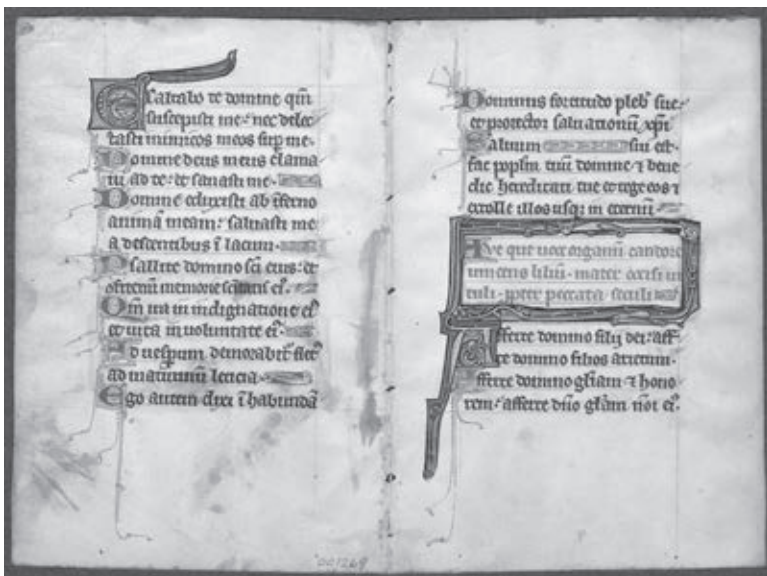 Exaltabo te domine qm̄
suscepisti me: nec delec
tasti inimicos meos sup me.
Domine deus meus clama
ui ad te: et sanasti me.
Domine eduxisti ab īferno
animā meam: saluasti me
a descentibus ī lacum.
Psallite domino sc̄i eius: et
memorie
ira in indignatione ei᷒
et uita in uoluntate ei᷒.
Ad uesperum demorabit᷑ flet᷒
ad matutinū leticia.
Ego autem dixi ī habundā
Dominus fortitudo pleb᷒ sue:
et protector saluationū xp̄i
Saluum sui est.
fac popl̄m tuū domine ⁊ bene
dic hereditati tue et rege eos ⁊
extolle illos usq᷒ in eternū
Aue que organū candore
lilium. mater
peccata seculi
Afferte domino filij dei: aff
te domino filios arietum.
Afferte domino gl̄iam ⁊ hono
rem: afferte dn̄o gl̄am nōi ei᷒.
001269